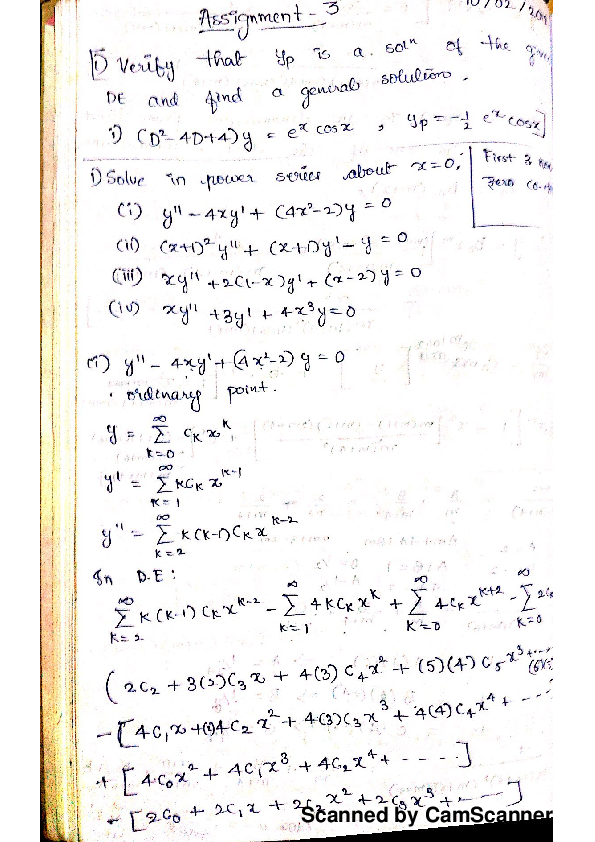 Assignment - 3
10/02/201
1) Verify that yp is a soln of the given
DE and find a general solution.
i) (D²-4D+4)y = eˣ cosx , yp = -1/2 eˣ cosx]
1) Solve in power series about x=0.
First 3 non
Zero co-
(i) y'' - 4xy' + (4x²-2)y = 0
(ii) (x+1)² y'' + (x+1)y' - y = 0
(iii) xy'' + 2(1-x)y' + (x-2)y = 0
(iv) xy'' + 3y' + 4x³y = 0
(i) y'' - 4xy' + (4x²-2) y = 0
ordinary point.
y = ∞ Σ k=0 Ck xᵏ
y' = ∞ Σ k=1 kCk xᵏ⁻¹
y'' = ∞ Σ k=2 k(k-1)Ck xᵏ⁻²
In D.E:
∞ Σ k=2 k(k-1)Ck xᵏ⁻² - ∞ Σ k=1 4kCk xᵏ + ∞ Σ k=0 4Ck xᵏ⁺² - ∞ Σ k=0 2C
(2C₂ + 3(2)C₃x + 4(3)C₄x² + (5)(4)C₅x³ + ....
- [4C₁x + (2)4C₂x² + 4(3)C₃x³ + 4(4)C₄x⁴ + ....
+ [4C₀x² + 4C₁x³ + 4C₂x⁴ + .....]
- [2C₀ + 2C₁x + 2C₂x² + 2C₃x³ + .....]
Scanned by CamScanner